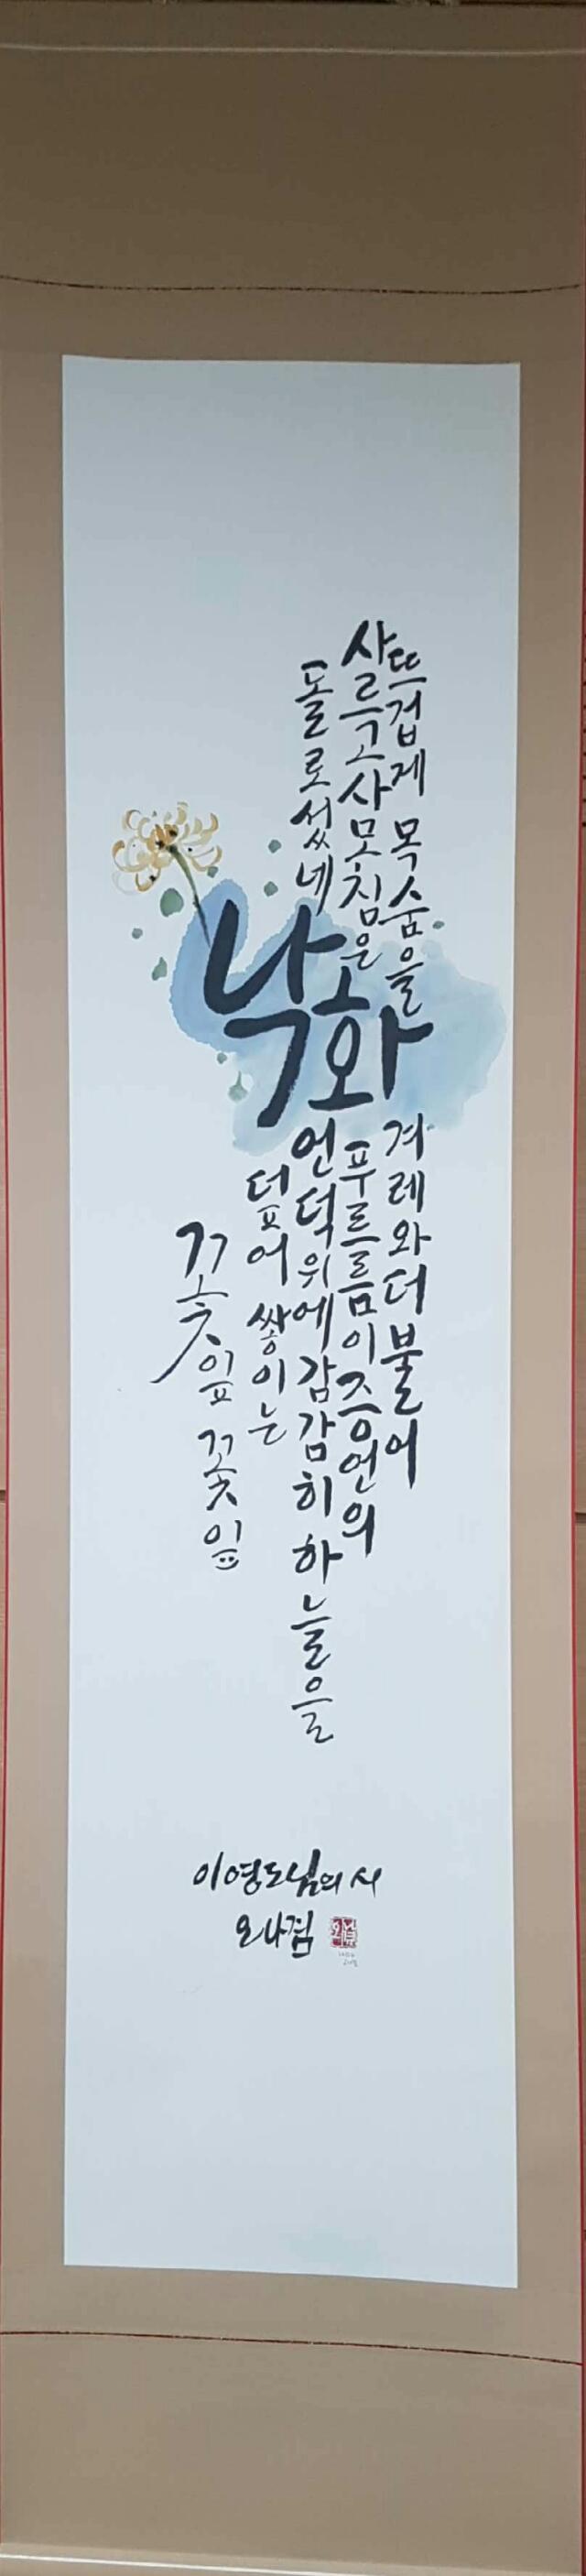 뜨겁게 목숨을
사르고 사모침은
돌로 섰네
낙화
겨레와 더불어
푸르름이 증언의
언덕 위에 감감히 하늘을
덮어 쌓이는
꽃잎 꽃잎
이영도님의 시
오나겸